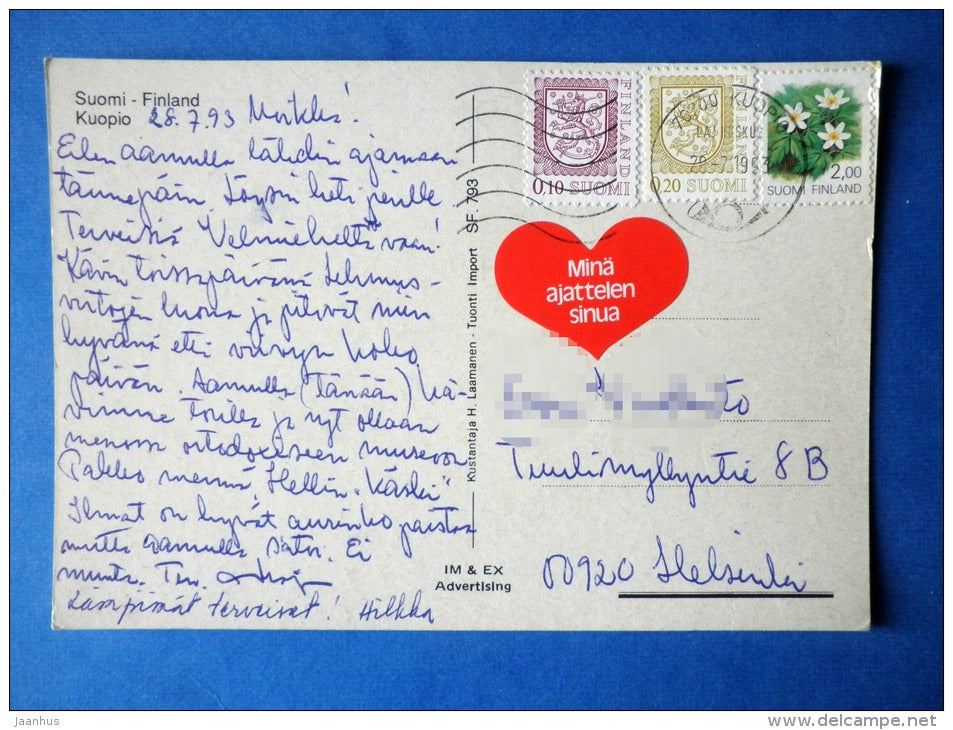 Suomi - Finland
Kuopio 28.7.93 Moikka!
Eilen aamulla lähdin ajamaan
tännepäin. Löysin heti perille
Terveisiä vaan!
Kävin toissapäivänä Lehmus-
luona ja pitivät niin
hyvänä että viivyin koko
päivän. Aamulla (tänään) kä-
vimme torilla ja nyt ollaan
menossa ortodoksiseen museoon
Pakko mennä, Hellin "käski"
Ilmat on hyvät aurinko paistaa
mutta aamulla satoi. Ei
muuta. T:m.
Lämpimät terveiset! Hilkka
Kustantaja H. Laamanen - Tuonti Import SF. 793
IM & EX
Advertising
FINLAND
0.10 SUOMI
FINLAND
0.20 SUOMI
2,00
SUOMI FINLAND
KUOPIO
Minä
ajattelen
sinua
Tuulimyllyntie 8 B
00920 Helsinki
Jaanhus
www.delcampe.net